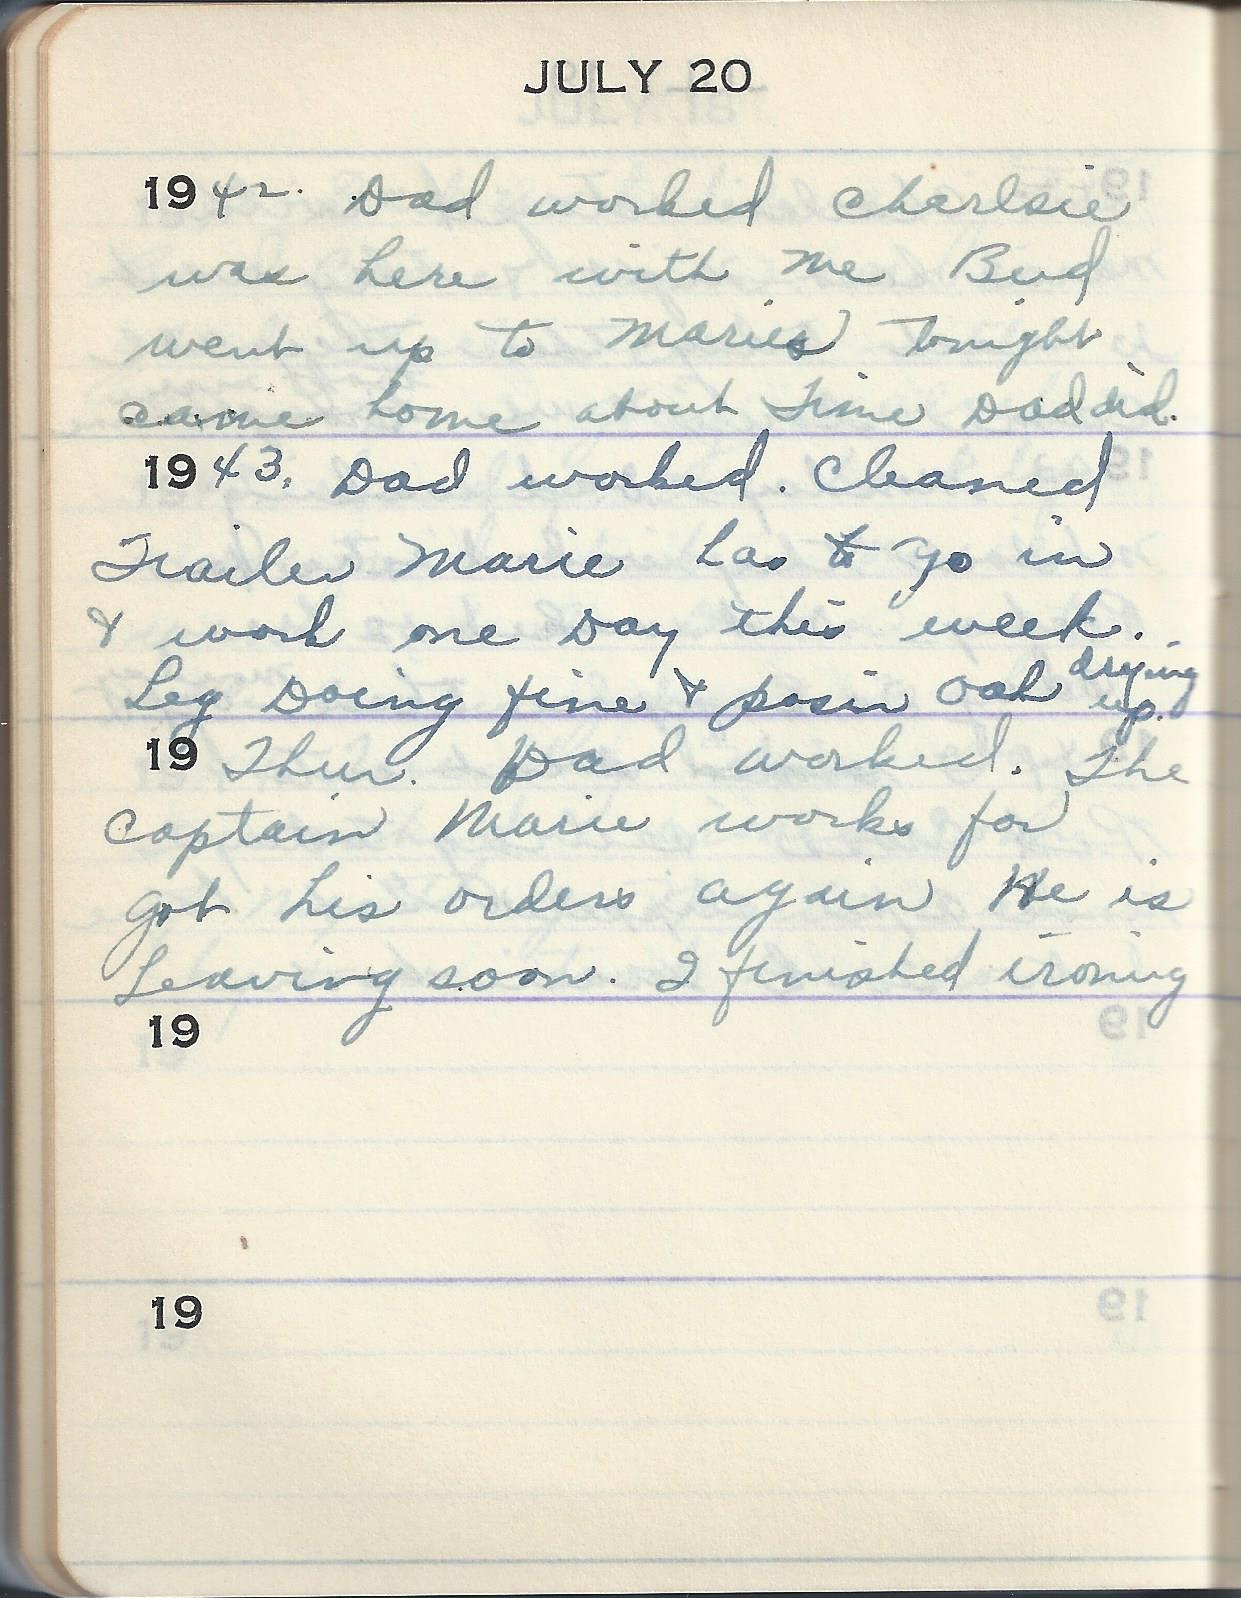 JULY 20
1942. Dad worked Charlsie
was here with me Bud
went up to Maries tonight
came home about time Dad did.
1943. Dad worked. Cleaned
Trailer Marie has to go in
& work one Day this week.
Leg Doing fine & posin Oak drying
up.
19 Thur. Dad worked. The
Captain Marie works for
got his orders again He is
Leaving soon. I finished ironing
19
19